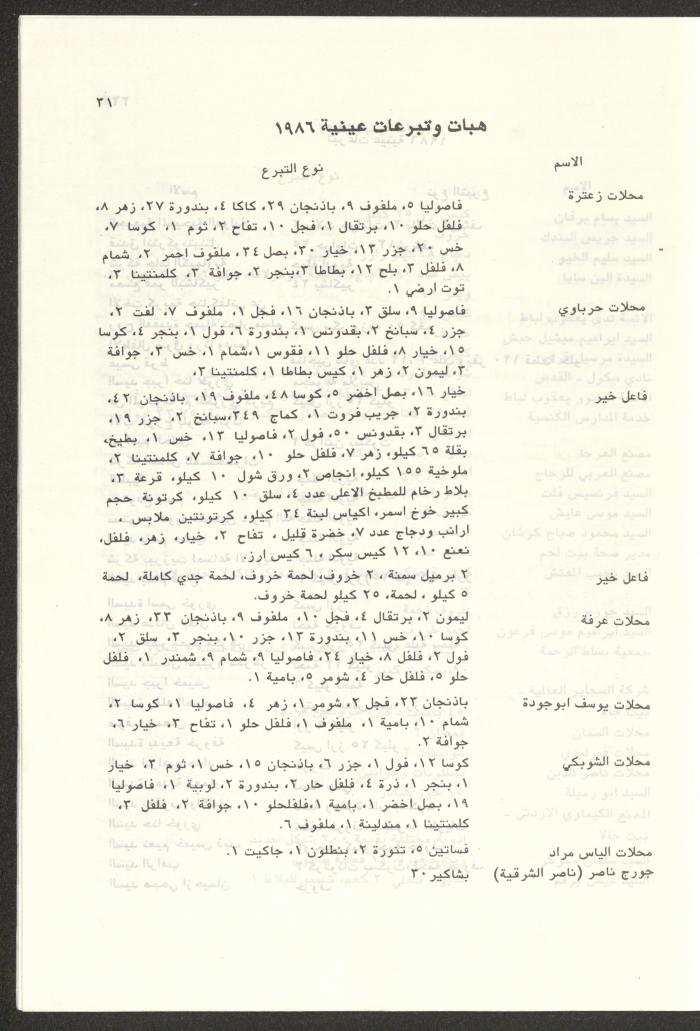 ٣١
هبات وتبرعات عينية ١٩٨٦
الاسم نوع التبرع
محلات زعترة فاصوليا ٥، ملفوف ٩، باذنجان ٢٩، كاكا ٤، بندورة ٢٧، زهر ٨،
فلفل حلو ١٠، برتقال ١، فجل ١٠، تفاح ٢، ثوم ١، كوسا ٧,
خس ٢٠، جزر ١٣، خيار ٣٠، بصل ٣٤، ملفوف احمر ٢، شمام
٨، فلفل ٣، بلح ١٢، بطاطا ٣،بنجر ٢، جوافة ٣، كلمنتينا ٣,
توت ارضي ١.
محلات حرباوي فاصوليا ٩، سلق ٣، باذنجان ١٦، فجل ١، ملفوف ٧، لفت ٢،
جزر ٤، سبانخ ٢، بقدونس ١، بندورة ٦، فول ١، بنجر ٤، كوسا
١٥، خيار ٨، فلفل حلو ١١، فقوس ١،شمام ١، خس ٣، جوافة
٣، ليمون ٢، زهر ١، كيس بطاطا ١، كلمنتينا ٣,
فاعل خير خيار ١٦، بصل اخضر ٥، كوسا ٤٨، ملفوف ١٩، باذنجان ٤٢،
بندورة ٢، جريب فروت ١، كماج ٣٤٩،سبانخ ٢، جزر ١٩،
برتقال ٣، بقدونس ٥٠، فول ٢، فاصوليا ١٣، خس ١، بطيخ،
بقلة ٦٥ كيلو، زهر ٧، فلفل حلو ١٠، جوافة ٧، كلمنتينا ٢،
ملوخية ١٥٥ كيلو، انجاص ٢، ورق شول ١٠ كيلو، قرعة ٣،
بلاط رخام للمطبخ الاعلى عدد ٤، سلق ١٠ كيلو، كرتونة حجم
كبير خوخ اسمر، اكياس لبنة ٣٤ كيلو، كرتونتين ملابس ،
ارانب ودجاج عدد ٧، خضرة قليل ، تفاح ٢، خيار، زهر، فلفل،
نعنع ١٠، ١٢ كيس سكر ، ٦ كيس ارز.
فاعل خير ٢ برميل سمنة ، ٢ خروف، لحمة خروف، لحمة جدي كاملة، لحمة
٥ كيلو ، لحمة، ٢٥ كيلو لحمة خروف.
محلات عرفة ليمون ٢، برتقال ٤، فجل ١٠، ملفوف ٩، باذنجان ٣٣، زهر ٨,
كوسا ١٠، خس ١١، بندورة ١٣، جزر ١٠، بنجر ٣، سلق ٢،
فول ٢، فلفل ٨، خيار ٢٤، فاصوليا ٩، شمام ٩، شمندر ١، فلفل
حلو ٥، فلفل حار ٤، شومر ٥، بامية ١.
محلات يوسف ابوجودة باذنجان ٢٣، فجل ٢، شومر ١، زهر ٤، فاصوليا ١، كوسا ٢،
شمام ١٠، بامية ١، ملفوف ١، فلفل حلو ١، تفاح ٣، خيار ٦،
جوافة ٢.
محلات الشوبكي كوسا ١٢، فول ١، جزر ٦، باذنجان ١٥، خس ١، ثوم ٣، خيار
١، بنجر ١، ذرة ٤، فلفل حار ٢، بندورة ٢، لوبية ١، فاصوليا
١٩، بصل اخضر ١، بامية ١،فلفلحلو ١٠، جوافة ٢، فلفل ٣,
كلمنتينا ١، مندلينة ١، ملفوف ٦.
محلات الياس مراد فساتين ٥، تنورة ٢، بنطلون ١، جاكيت ١.
جورج ناصر (ناصر الشرقية) بشاكير ٣٠